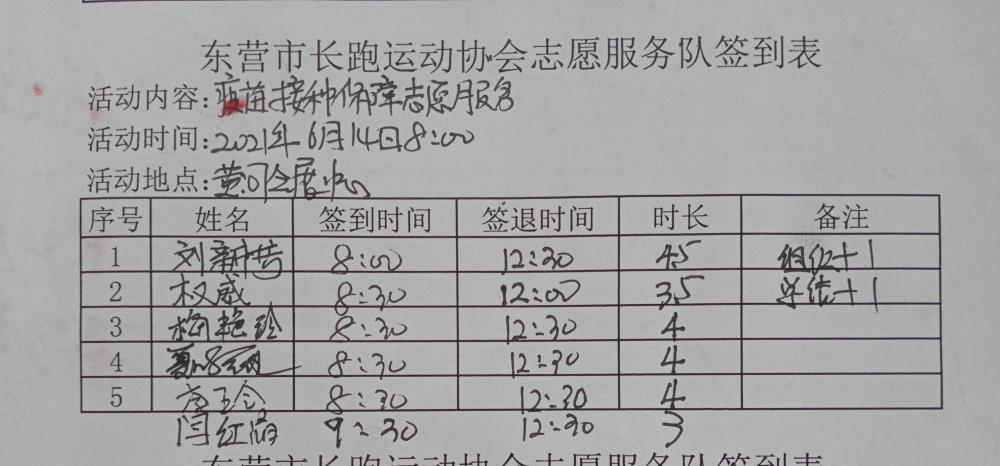 东营市长跑运动协会志愿服务队签到表
活动内容:疫苗接种保障志愿服务
活动时间:2021年6月14日8:00
活动地点:黄河会展中心
序号 姓名 签到时间 签退时间 时长 备注
1 刘新 8:00 12:30 4.5 组织+1
2 权威 8:30 12:00 3.5 总结+1
3 梅艳玲 8:30 12:30 4
4 8:30 12:30 4
5 李玉金 8:30 12:30 4
闫红 9:30 12:30 3
东营市长跑运动协会志愿服务队签到表